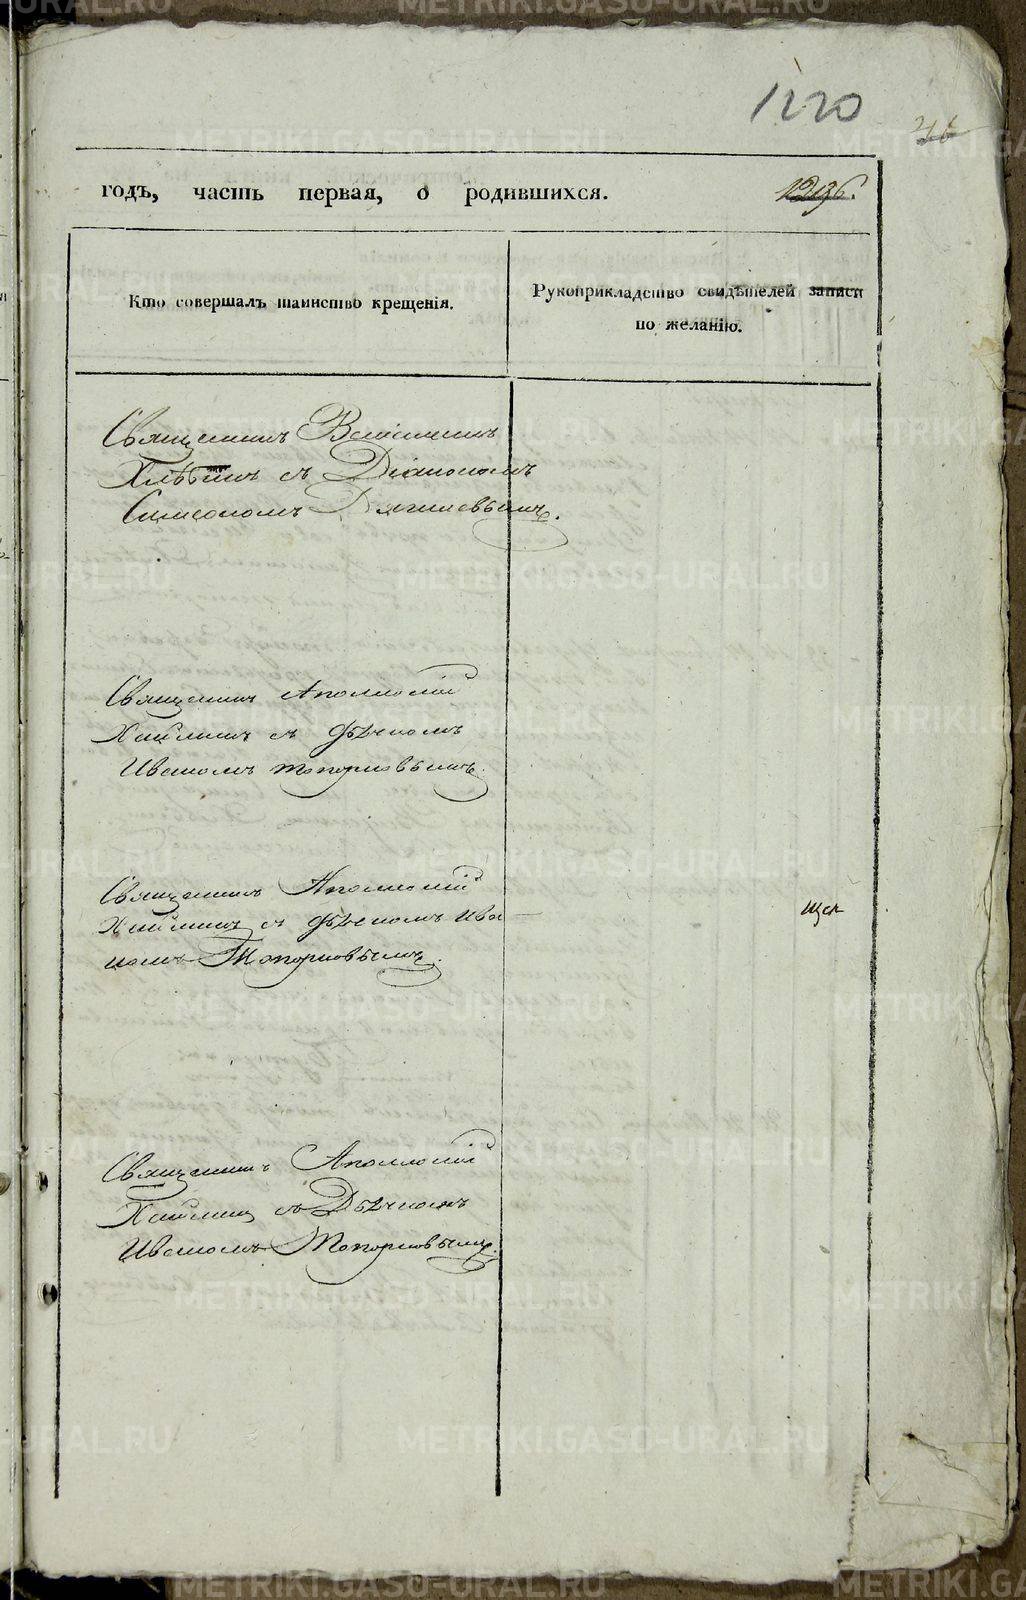 1220
46
годъ, часть первая, о родившихся.
1296.
Кто совершалъ таинство крещенія.
Рукоприкладство свидѣтелей записи
по желанію.
Священникъ
Хлѣбинъ съ Діакономъ
Симеономъ
Священникъ Аполлосій
съ дьячкомъ
Иваномъ Топорковымъ.
Священникъ Аполлосій
съ дьячкомъ Ива
номъ Топорковымъ.
Священникъ Аполлосій
съ Дьячкомъ
Иваномъ Топорковымъ.
METRIKI.GASO-URAL.RU